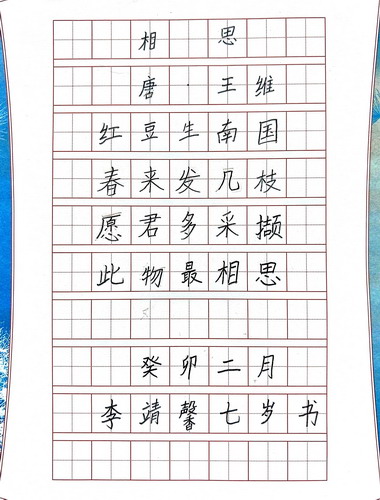 相思
唐·王维
红豆生南国
春来发几枝
愿君多采撷
此物最相思
癸卯二月
李靖馨七岁书